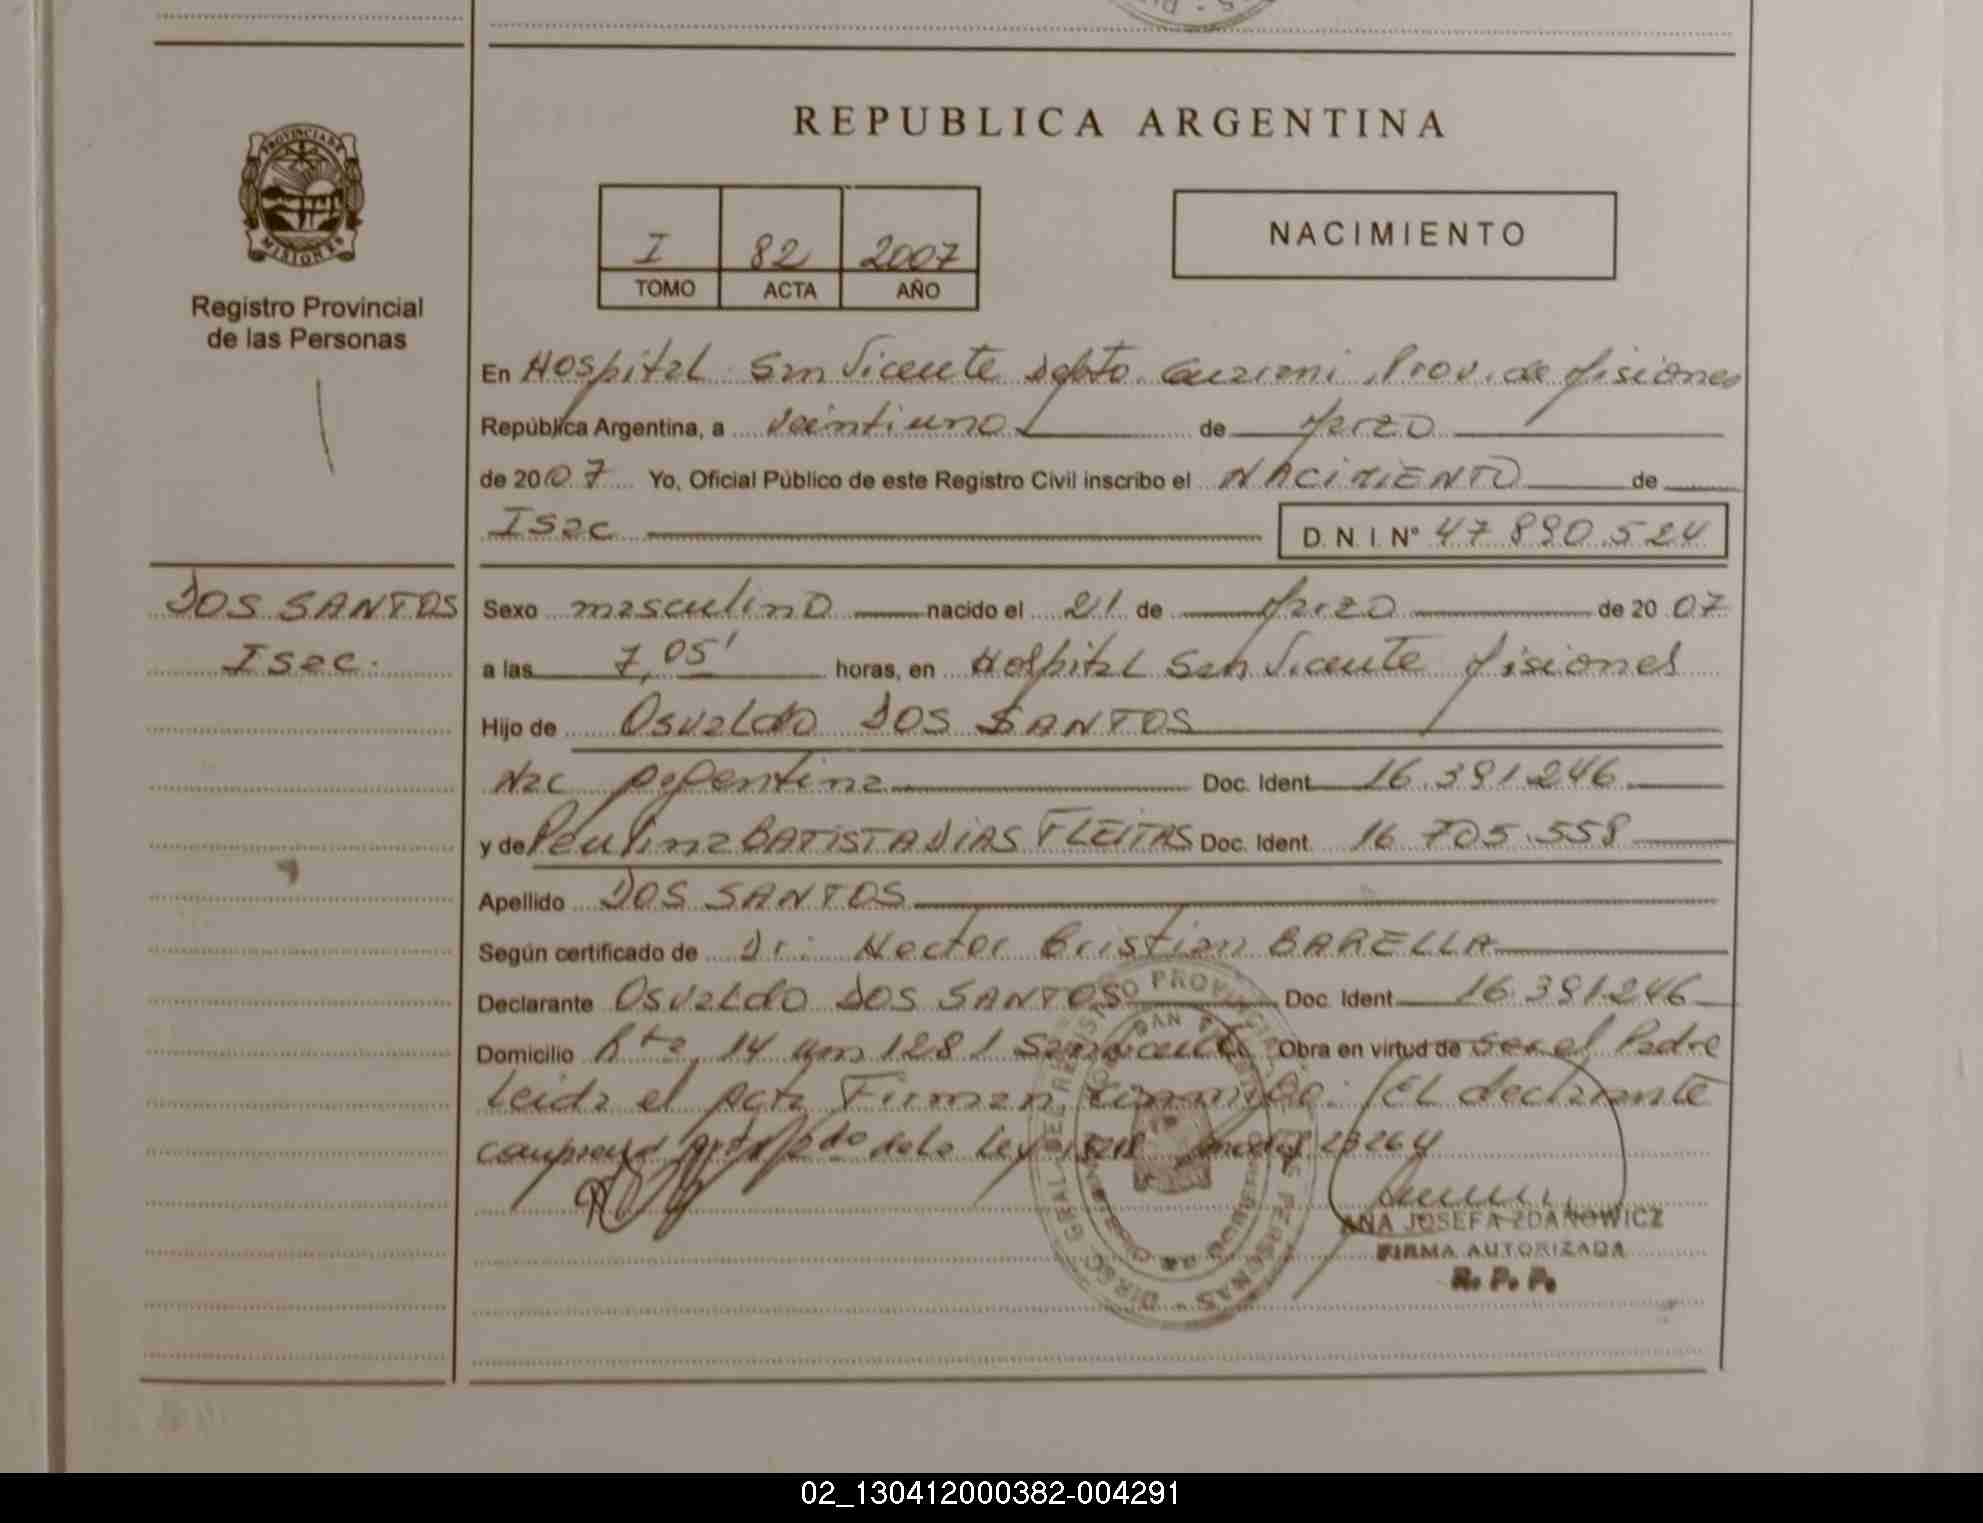 REPUBLICA ARGENTINA
PROVINCIA DE MISIONES
Registro Provincial
de las Personas
I 82 2007
TOMO ACTA AÑO
NACIMIENTO
En Hospital San Vicente Dpto. Guarani, Prov. de Misiones
República Argentina, a veintiuno de Marzo
de 2007 Yo, Oficial Público de este Registro Civil inscribo el NACIMIENTO de
Isac D. N. I. Nº 47 890.524
DOS SANTOS
Isac.
Sexo masculino nacido el 21 de Marzo de 2007
a las 7,05' horas, en Hospital San Vicente Misiones
Hijo de Osvaldo DOS SANTOS
Nac Argentina Doc. Ident. 16.391.246
y de Paulina BATISTA DIAS FLEITAS Doc. Ident. 16 705.558
Apellido DOS SANTOS
Según certificado de Dr: Hector Cristian BARELLA
Declarante Osvaldo DOS SANTOS Doc. Ident. 16.391.246
Domicilio Rta 14 km 1281 San Vicente Obra en virtud de ser el Padre
Leida el Acta Firman conmigo. El declarante
de la Ley 23264
ANA JOSEFA ZDANOWICZ
FIRMA AUTORIZADA
R. P. P.
02_130412000382-004291